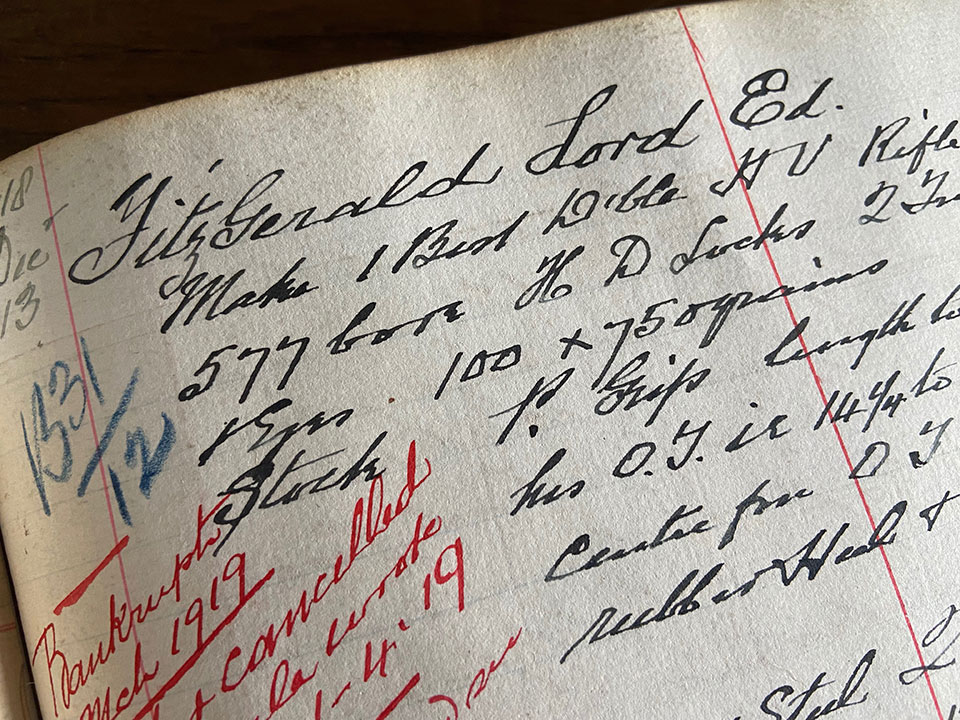 18
Dec
13
FitzGerald Lord Ed.
Make 1 Best D'ble H V Rifle
577 bore H D Locks 2
100 x 750 grains
Stock P. Grip length to
his O.T. ie 14 1/4 to
Centre for O T
rubber Heel
Steel
B31/12
Bankrupt
Mch 1919
cancelled
wrote
4. 19